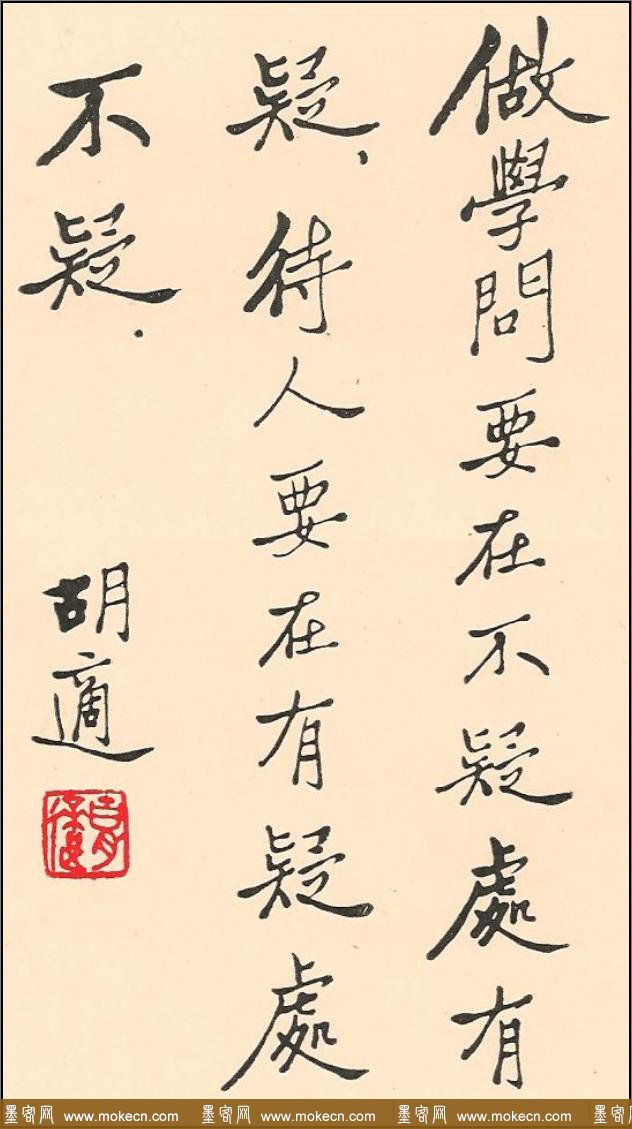 做學問要在不疑處有
疑，待人要在有疑處
不疑．
胡適
墨客网 www.mokecn.com 墨客网 www.mokecn.com 墨客网 www.mokecn.com